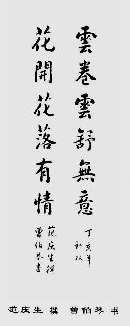 雲卷雲舒無意
丁亥年
初秋
花開花落有情
范庆生撰
曾伯琴书
范庆生 撰 曾伯琴 书